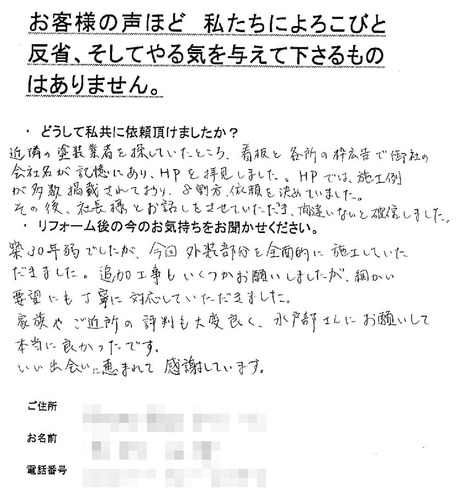 お客様の声ほど 私たちによろこびと
反省、そしてやる気を与えて下さるもの
はありません。
・ どうして私共に依頼頂けましたか？
近隣の塗装業者を探していたところ、看板と各所の枠広告で御社の
会社名が記憶にあり、HPを拝見しました。HPでは、施工例
が多数掲載されており、8割方、依頼を決めていました。
その後、社長様とお話しをさせていただき、間違いないと確信しました。
・ リフォーム後の今のお気持ちをお聞かせください。
築30年弱でしたが、今回外装部分を全面的に施工していた
だきました。追加工事もいくつかお願いしましたが、細かい
要望にも丁寧に対応していただきました。
家族やご近所の評判も大変良く、水戸部さんにお願いして
本当に良かったです。
いい出会いに恵まれて感謝しています。
ご住所
お名前
電話番号